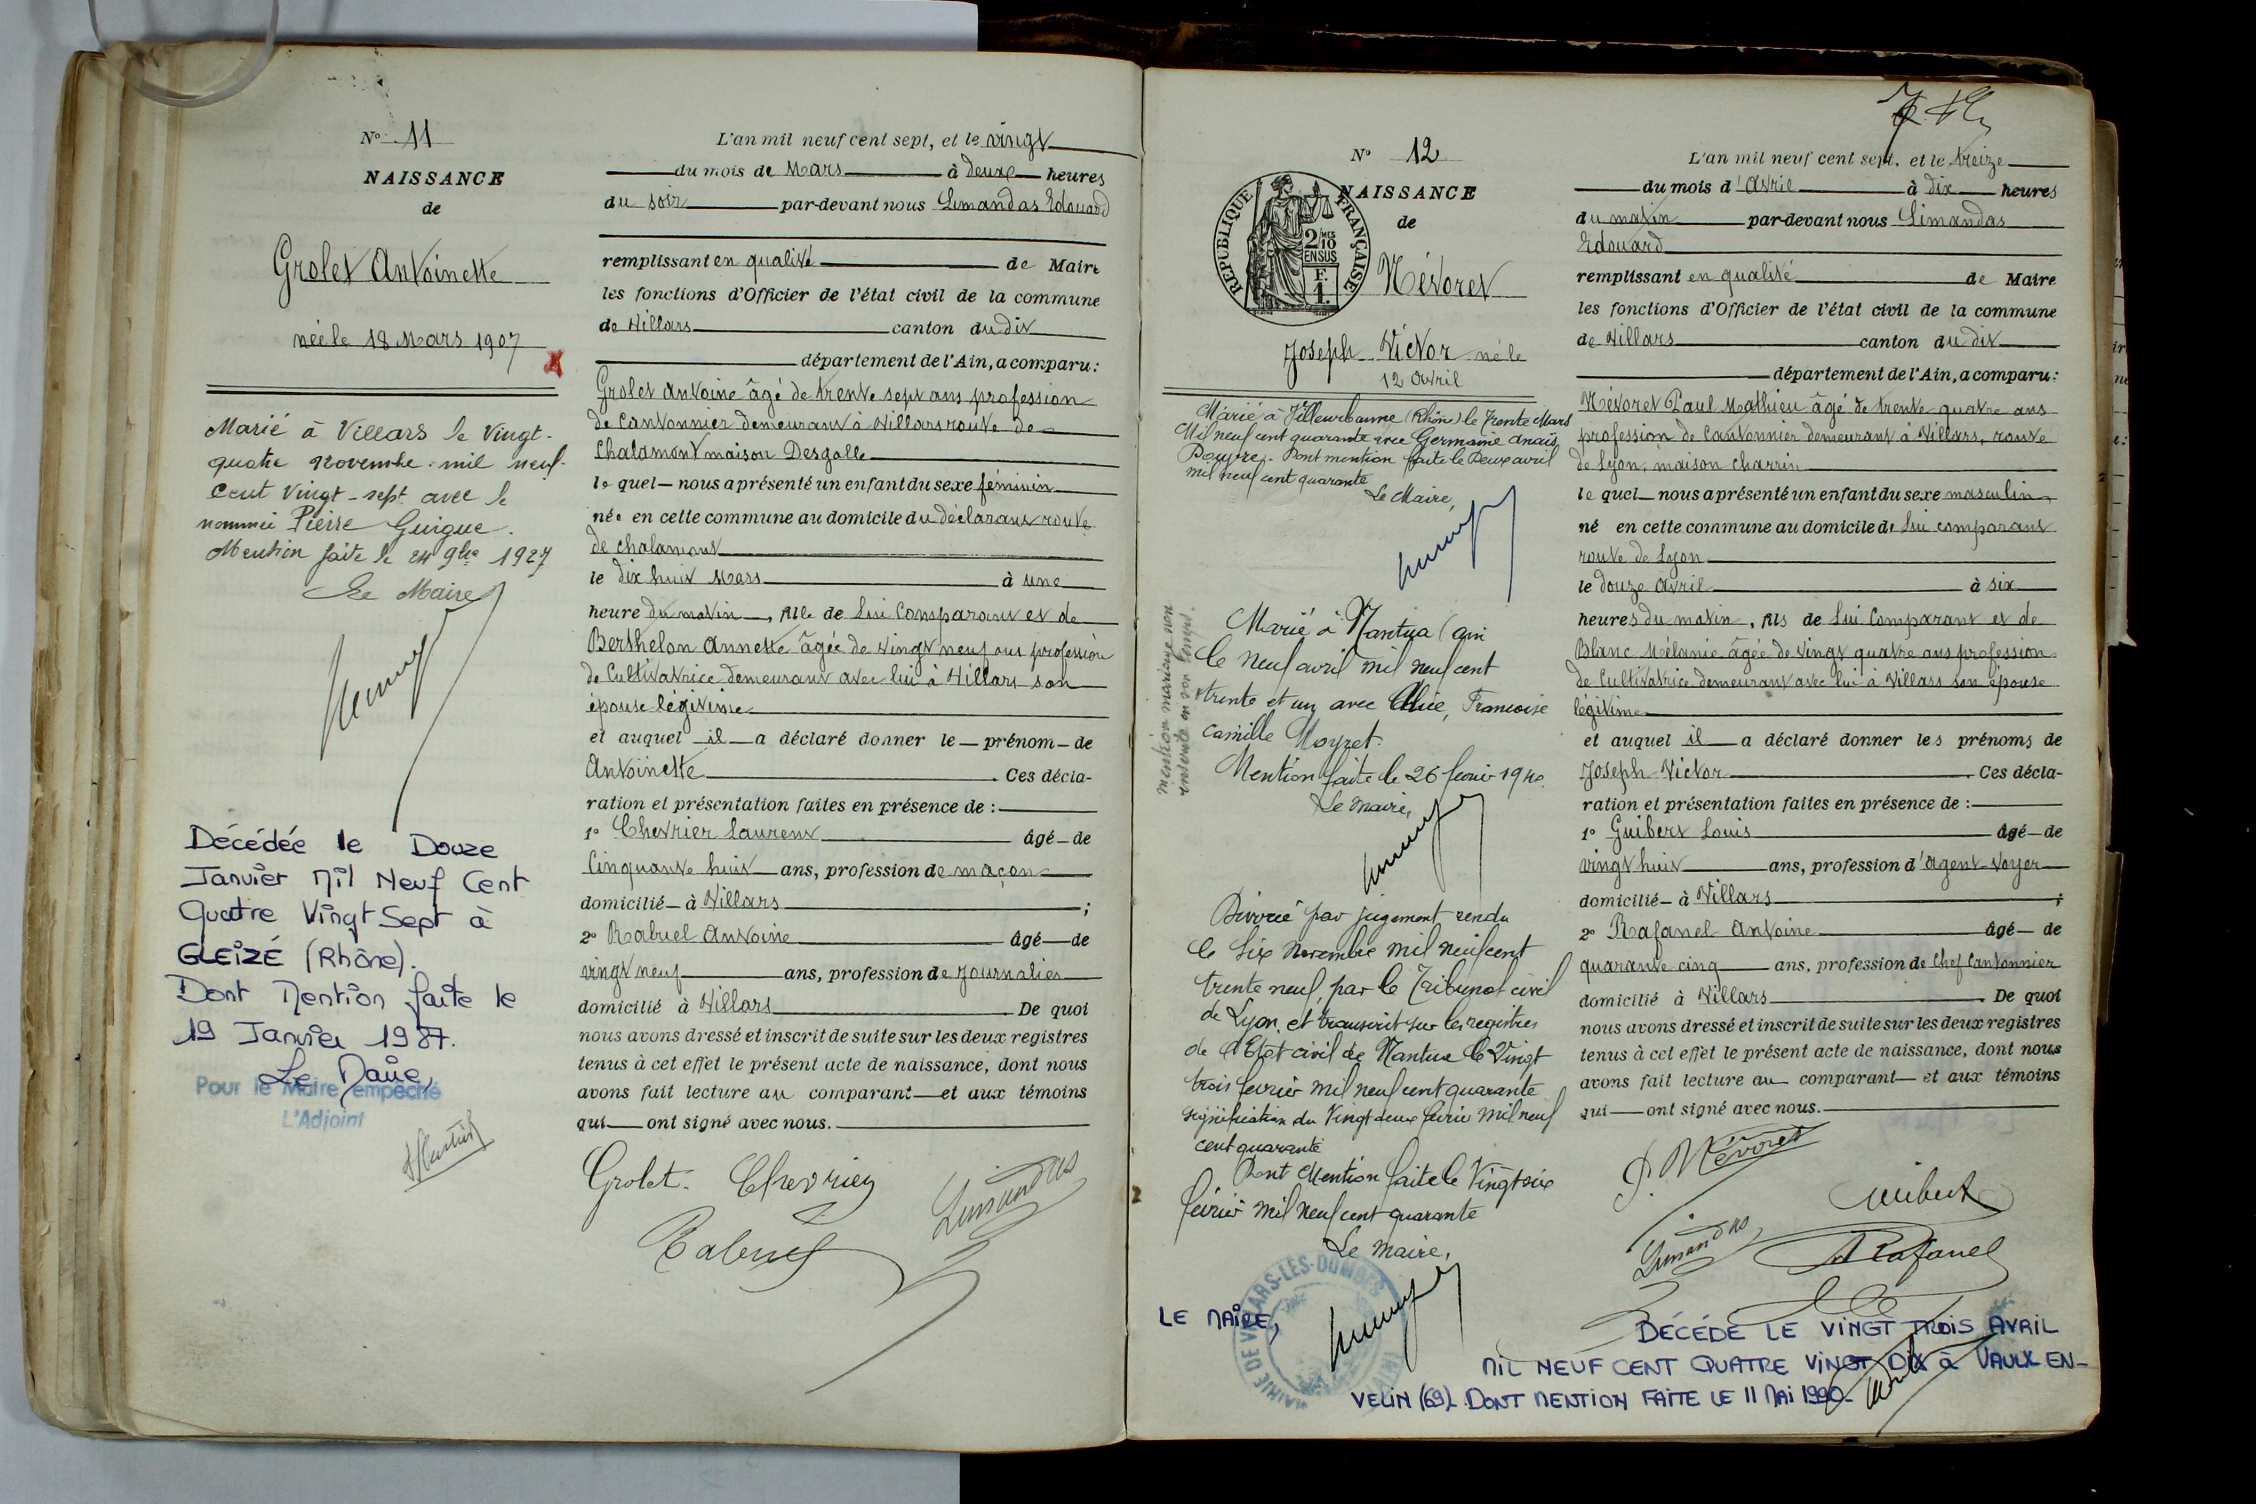 N° 11
NAISSANCE
de
Grolet Antoinette
née le 18 Mars 1907
Marié à Villars le vingt-
quatre novembre mil neuf-
cent vingt-sept avec le
nommé Pierre Guigue.
Mention faite le 24 9bre 1927
Le Maire
Décédée le Douze
Janvier Mil Neuf Cent
Quatre Vingt Sept à
GLEIZÉ (Rhône).
Dont Mention faite le
19 Janvier 1987.
Le Maire,
Pour le Maire empêché
L'Adjoint
L'an mil neuf cent sept, et le vingt
du mois de Mars à deux heures
du soir par-devant nous Limandas Edouard
remplissant en qualité de Maire
les fonctions d'Officier de l'état civil de la commune
de Villars canton du dit
département de l'Ain, a comparu:
Grolet Antoine âgé de trente sept ans profession
de Cantonnier demeurant à Villars route de
Chalamont maison Desgalle
le quel nous a présenté un enfant du sexe féminin
née en cette commune au domicile du déclarant route
de chalamont
le dix huit Mars à une
heure du matin, fille de lui Comparant et de
Berthelon Annette âgée de vingt neuf ans profession
de Cultivatrice demeurant avec lui à Villars son
épouse légitime
et auquel il a déclaré donner le prénom de
Antoinette. Ces décla-
ration et présentation faites en présence de :
1° Chevrier Laurent âgé de
Cinquante huit ans, profession de maçon
domicilié à Villars ;
2° Rabuel Antoine âgé de
vingt neuf ans, profession de Journalier
domicilié à Villars. De quoi
nous avons dressé et inscrit de suite sur les deux registres
tenus à cet effet le présent acte de naissance, dont nous
avons fait lecture au comparant et aux témoins
qui ont signé avec nous.
Grolet. Chevrier
Limandas
Rabuel
N° 12
NAISSANCE
de
RÉPUBLIQUE FRANÇAISE
2/10 MES
EN SUS
F.
1.
Névoret
Joseph Victor né le
12 Avril
Marié à Villeurbanne (Rhône) le Trente Mars
Mil neuf cent quarante avec Germaine Anaïs
Dont mention faite le Deux avril
mil neuf cent quarante
Le Maire,
mention mariage non
Marié à Nantua (ain
le neuf avril mil neuf cent
trente et un avec Alice, Françoise
Camille Moyret.
Mention faite le 26 fevrier 1940.
Le Maire,
Divorcé par jugement rendu
le six Novembre mil neuf cent
trente neuf, par le Tribunal civil
de Lyon, et transcrit sur les registres
de l'Etat civil de Nantua le Vingt
trois fevrier mil neuf cent quarante
signification du Vingt deux février mil neuf
cent quarante
Dont Mention faite le Vingt six
février mil neuf cent quarante
Le maire,
MAIRIE DE VILLARS-LES-DOMBES (AIN)
LE MAIRE,
L'an mil neuf cent sept, et le treize
du mois d'Avril à dix heures
du matin par-devant nous Limandas
Edouard
remplissant en qualité de Maire
les fonctions d'Officier de l'état civil de la commune
de Villars canton du dit
département de l'Ain, a comparu:
Névoret Paul Mathieu âgé de trente quatre ans
profession de Cantonnier demeurant à Villars, route
de Lyon, maison charrin
le quel nous a présenté un enfant du sexe masculin
né en cette commune au domicile de lui comparant
route de Lyon
le douze Avril à six
heures du matin, fils de lui Comparant et de
Blanc Mélanie âgée de vingt quatre ans profession
de Cultivatrice demeurant avec lui à Villars son épouse
légitime
et auquel il a déclaré donner les prénoms de
Joseph Victor. Ces décla-
ration et présentation faites en présence de :
1° Guibert Louis âgé de
vingt huit ans, profession d'Agent-Voyer
domicilié à Villars ;
2° Rafanel Antoine âgé de
quarante cinq ans, profession de Chef Cantonnier
domicilié à Villars. De quoi
nous avons dressé et inscrit de suite sur les deux registres
tenus à cet effet le présent acte de naissance, dont nous
avons fait lecture au comparant et aux témoins
qui ont signé avec nous.
P. Névoret
Guibert
Limandas
Rafanel
DÉCÉDÉ LE VINGT TROIS AVRIL
MIL NEUF CENT QUATRE VINGT DIX à VAULX-EN-
VELIN (69). DONT MENTION FAITE LE 11 MAI 1990.